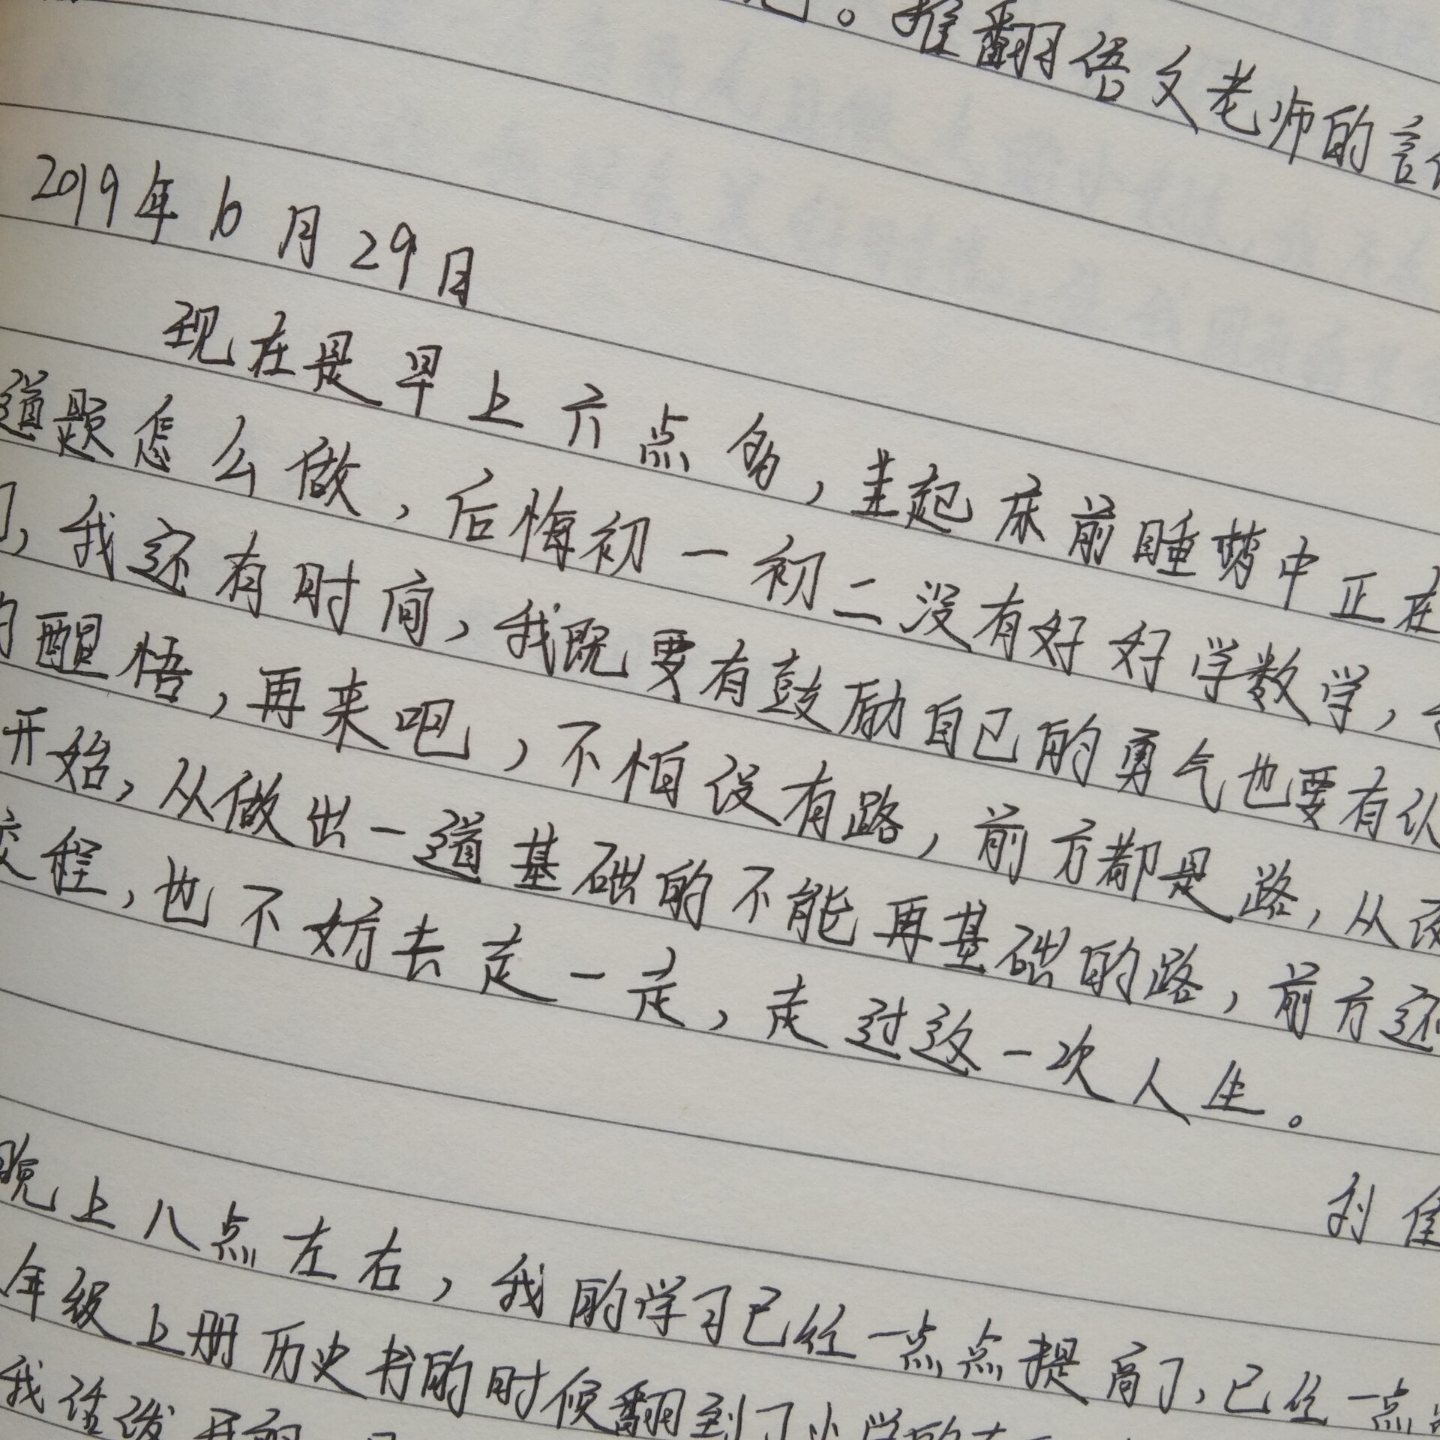 。推翻语文老师的言
2019年6月29日
现在是早上六点多,起床前睡梦中正在
道题怎么做,后悔初一初二没有好好学数学,
,我还有时间,我既要有鼓励自己的勇气也要有认
醒悟,再来吧,不怕没有路,前方都是路,从
开始,从做出一道基础的不能再基础的路,前方还
程,也不妨去走一走,走过这一次人生。
刘佳
晚上八点左右,我的学习已经一点点提高了,已经一点
年级上册历史书的时候翻到了小学的
我活泼开朗